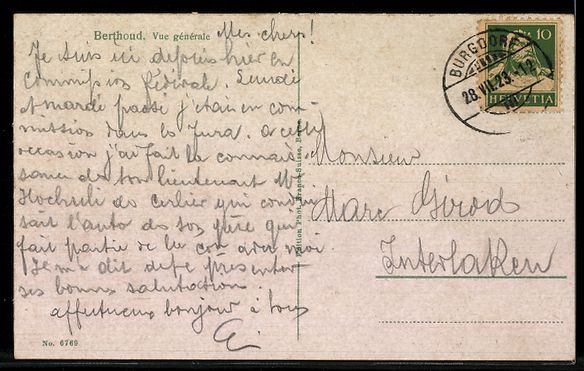 Berthoud. Vue générale
Mes chers!
Je suis ici depuis hier en
commission fédérale. Lundi
et mardi passé j'étais en com-
mission dans le Jura. A cette
occasion j'ai fait la connais-
sance de ton lieutenant Mr
Hochuli de Cerlier qui condui-
sait l'auto de son père qui
fait partie de la com avec moi
Je me dit de te présenter
ses bonnes salutations.
affectueux bonjour à tous
No. 6769
Edition Phot. Franco-Suisse, Berne
BURGDORF
28.VII.23.-12
10
HELVETIA
Monsieur
Marc Girod
Interlaken